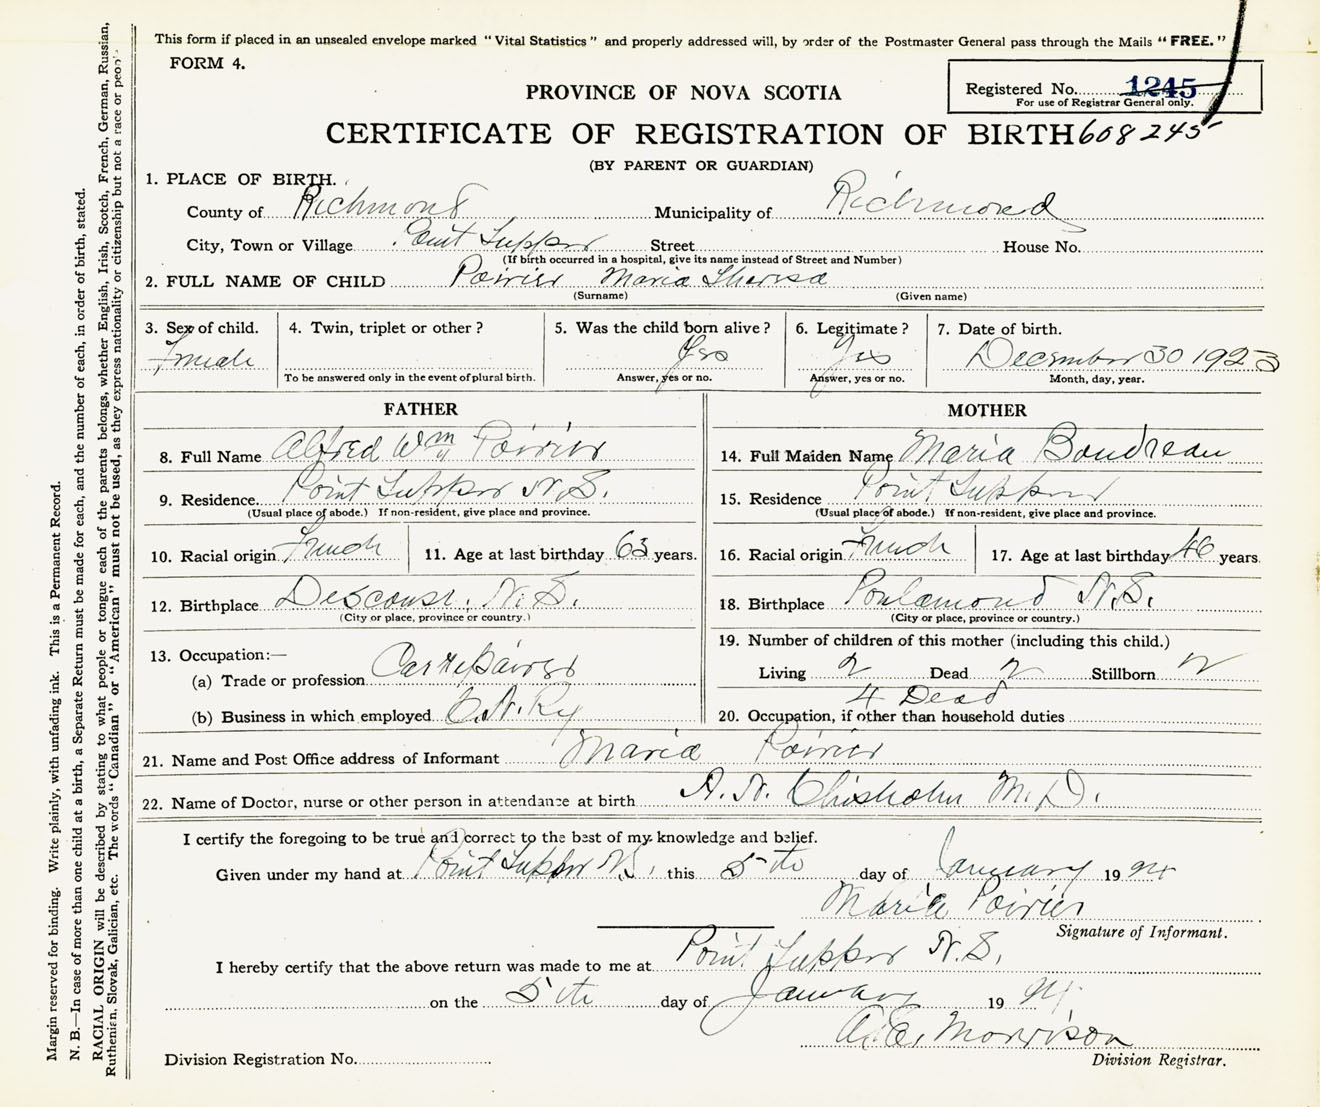 This form if placed in an unsealed envelope marked "Vital Statistics" and properly addressed will, by order of the Postmaster General pass through the Mails "FREE."
FORM 4.
Registered No. 1245
For use of Registrar General only.
PROVINCE OF NOVA SCOTIA
CERTIFICATE OF REGISTRATION OF BIRTH 608245
(BY PARENT OR GUARDIAN)
1. PLACE OF BIRTH.
County of Richmond Municipality of Richmond
City, Town or Village Point Tupper Street House No.
(If birth occurred in a hospital, give its name instead of Street and Number)
2. FULL NAME OF CHILD Poirier Maria Theresa
(Surname) (Given name)
3. Sex of child. 4. Twin, triplet or other? 5. Was the child born alive? 6. Legitimate? 7. Date of birth.
Female Yes Yes December 30 1923
To be answered only in the event of plural birth. Answer, yes or no. Answer, yes or no. Month, day, year.
FATHER MOTHER
8. Full Name Alfred Wm Poirier 14. Full Maiden Name Maria Boudreau
9. Residence. Point Tupper N.S. 15. Residence Point Tupper
(Usual place of abode.) If non-resident, give place and province. (Usual place of abode.) If non-resident, give place and province.
10. Racial origin French 11. Age at last birthday 63 years. 16. Racial origin French 17. Age at last birthday 46 years.
12. Birthplace Descouse. N.S. 18. Birthplace Poulamond N.S.
(City or place, province or country.) (City or place, province or country.)
19. Number of children of this mother (including this child.)
13. Occupation:— Living 2 Dead 2 Stillborn 2
(a) Trade or profession Car repairer 4 Dead
(b) Business in which employed C.N.Ry 20. Occupation, if other than household duties
21. Name and Post Office address of Informant Maria Poirier
22. Name of Doctor, nurse or other person in attendance at birth A. N. Chisholm M.D.
I certify the foregoing to be true and correct to the best of my knowledge and belief.
Given under my hand at Point Tupper N.S. this 5th day of January 1924
Maria Poirier
Signature of Informant.
I hereby certify that the above return was made to me at Point Tupper N.S.
on the 5th day of January 1924
Morrison
Division Registration No. Division Registrar.
Margin reserved for binding. Write plainly, with unfading ink. This is a Permanent Record.
N. B.—In case of more than one child at a birth, a Separate Return must be made for each, and the number of each, in order of birth, stated.
RACIAL ORIGIN will be described by stating to what people or tongue each of the parents belongs, whether English, Irish, Scotch, French, German, Russian,
Ruthenian, Slovak, Galician, etc. The words "Canadian" or "American" must not be used, as they express nationality or citizenship but not a race or people.